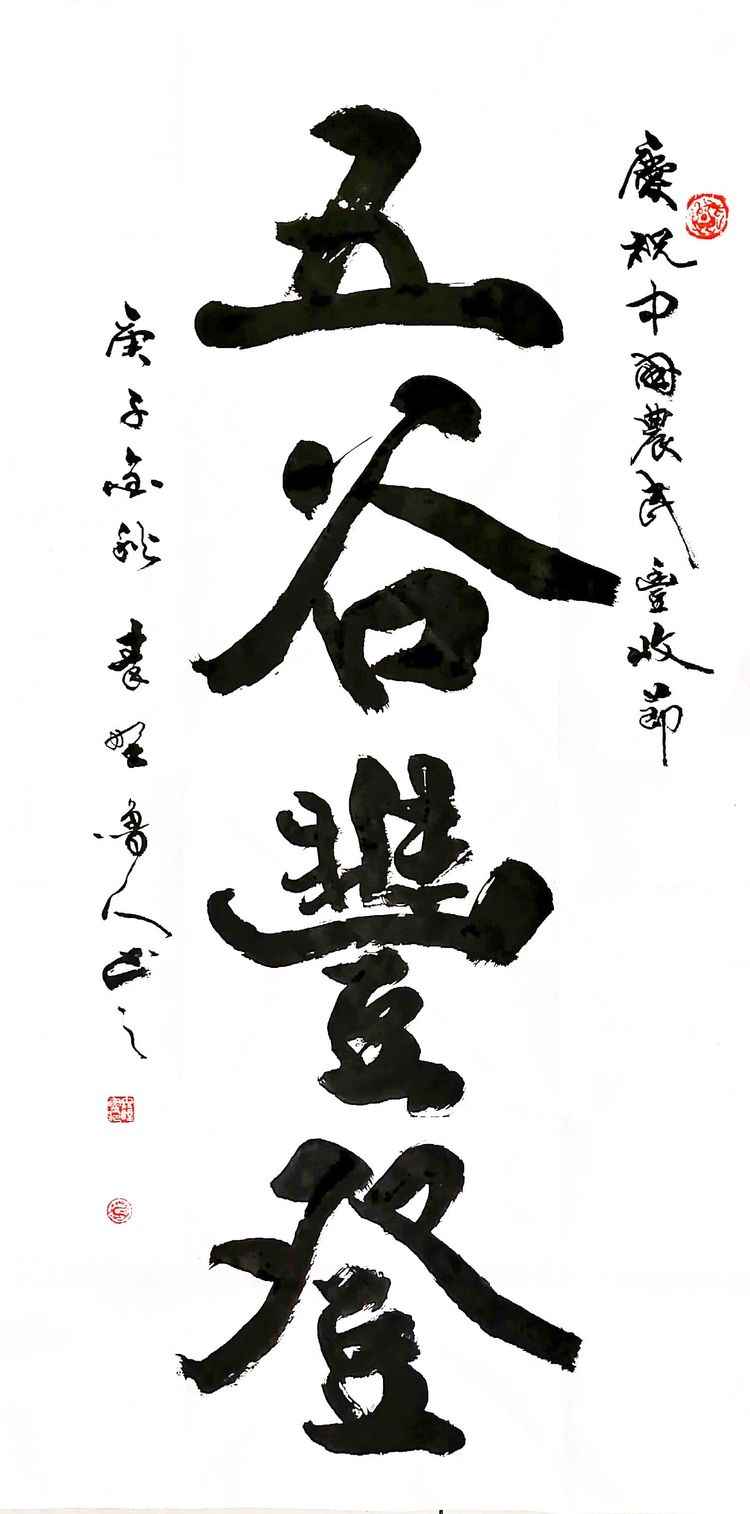 慶祝中國農民豐收節
五谷豐登
庚子金秋 書聖魯人